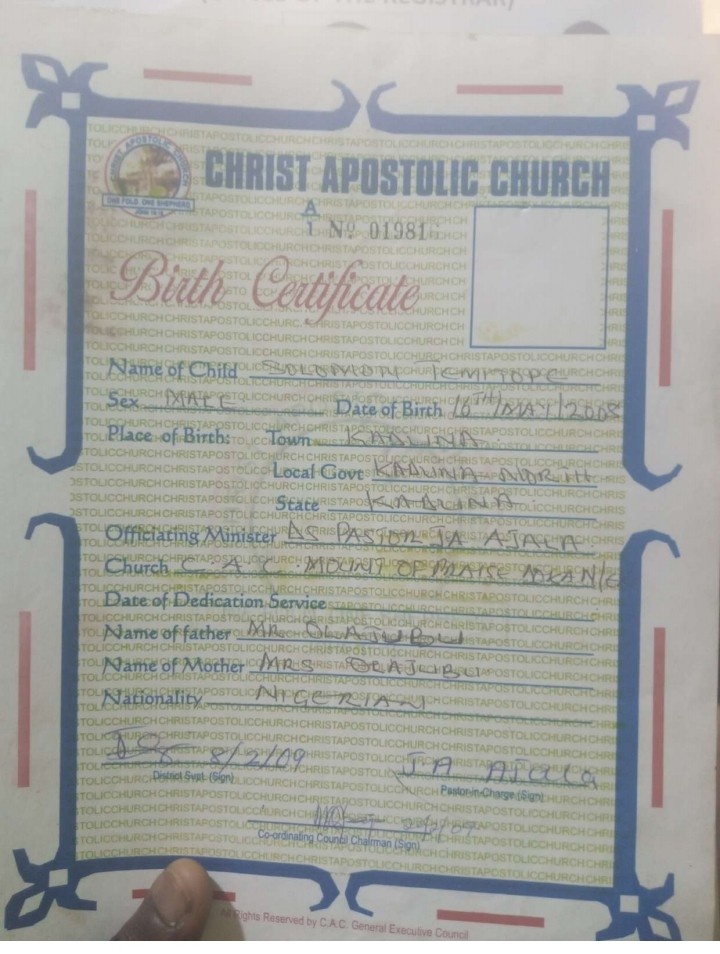 (OFFICE OF THE REGISTRAR)
CHRIST APOSTOLIC CHURCH
CHRIST APOSTOLIC CHURCH
ONE FOLD, ONE SHEPHERD
JOHN 10:16
A/1 Nº 01981
Birth Certificate
Name of Child SOLOMON TEMITOPE
Sex MALE Date of Birth 16TH/MAY/2008
Place of Birth: Town KADUNA
Local Govt KADUNA NORTH
State KADUNA
Officiating Minister DS PASTOR JA AJALA
Church C.A.C. MOUNT OF PRAISE
Date of Dedication Service
Name of father MR OLAJUBU
Name of Mother MRS OLAJUBU
Nationality NIGERIAN
8/2/09 J.A Ajala
District Supt. (Sign) Pastor-in-Charge (Sign)
Co-ordinating Council Chairman (Sign)
All Rights Reserved by C.A.C. General Executive Council